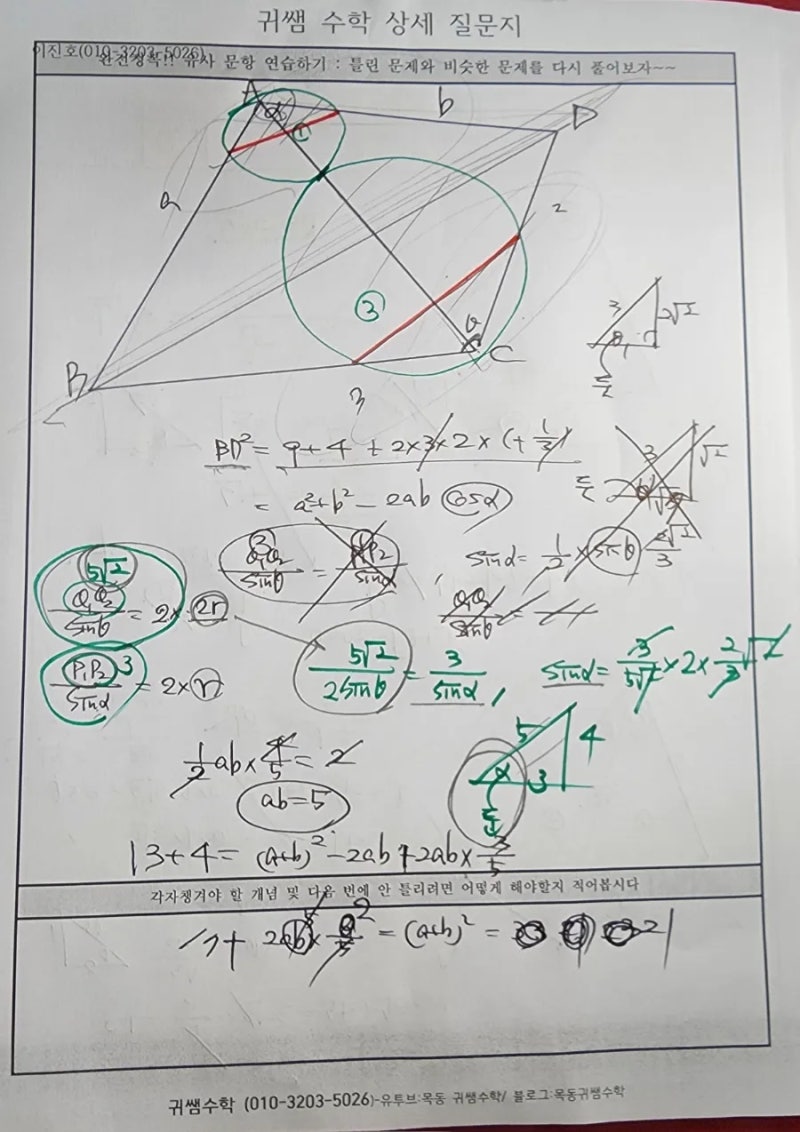 귀쌤 수학 상세 질문지
이진호(010-3203-5026)
완전정복!! 유사 문항 연습하기 : 틀린 문제와 비슷한 문제를 다시 풀어보자~~
A
α
①
b
D
a
2
③
θ
C
B
3
3
2√2
θ
둔
BD² = 9+4 + 2×3×2×(+1/3)
= a²+b² - 2ab cosα
3
√2
둔
5√2
Q₁Q₂/sinθ = 2×2r
Q₁Q₂/sinθ = P₁P₂/sinα , sinα = 1/2 × sinθ 2√2/3
Q₁Q₂/sinθ =
P₁P₂ 3/sinα = 2×r
5√2/2sinθ = 3/sinα , sinα = 3/5√2 ×2× 2/3 √2
1/2 ab × 4/5 = 2
ab=5
5
4
α
3
둔
13+4 = (a+b)² -2ab+2ab× 3/5
각자챙겨야 할 개념 및 다음 번에 안 틀리려면 어떻게 해야할지 적어봅시다
17+ 2ab× 2/5 = (a+b)² = 21
귀쌤수학 (010-3203-5026)-유투브:목동 귀쌤수학/ 블로그:목동귀쌤수학